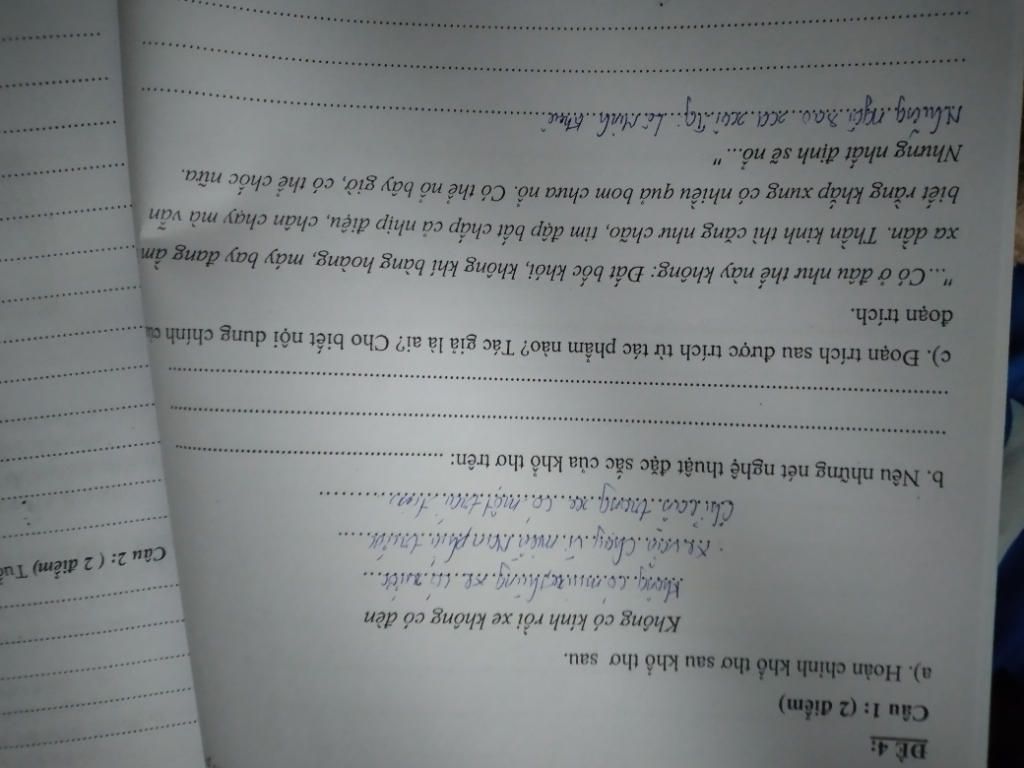 ĐỀ 4:
Câu 1: (2 điểm)
a). Hoàn chỉnh khổ thơ sau khổ thơ sau.
Không có kính rồi xe không có đèn
Không có mui xe thùng xe có xước
Xe vẫn chạy vì miền Nam phía trước
Chỉ cần trong xe có một trái tim
b. Nêu những nét nghệ thuật đặc sắc của khổ thơ trên:
c). Đoạn trích sau được trích từ tác phẩm nào? Tác giả là ai? Cho biết nội dung chính của
đoạn trích.
"...Có ở đâu như thế này không: Đất bốc khói, không khí bàng hoàng, máy bay đang ầm
xa dần. Thần kinh thì căng như chão, tim đập bất chấp cả nhịp điệu, chân chạy mà vẫn
biết rằng khắp xung có nhiều quả bom chưa nổ. Có thể nổ bây giờ, có thể chốc nữa.
Nhưng nhất định sẽ nổ..."
Những ngôi sao xa xôi. Tg: Lê Minh Khuê
Câu 2: ( 2 điểm)